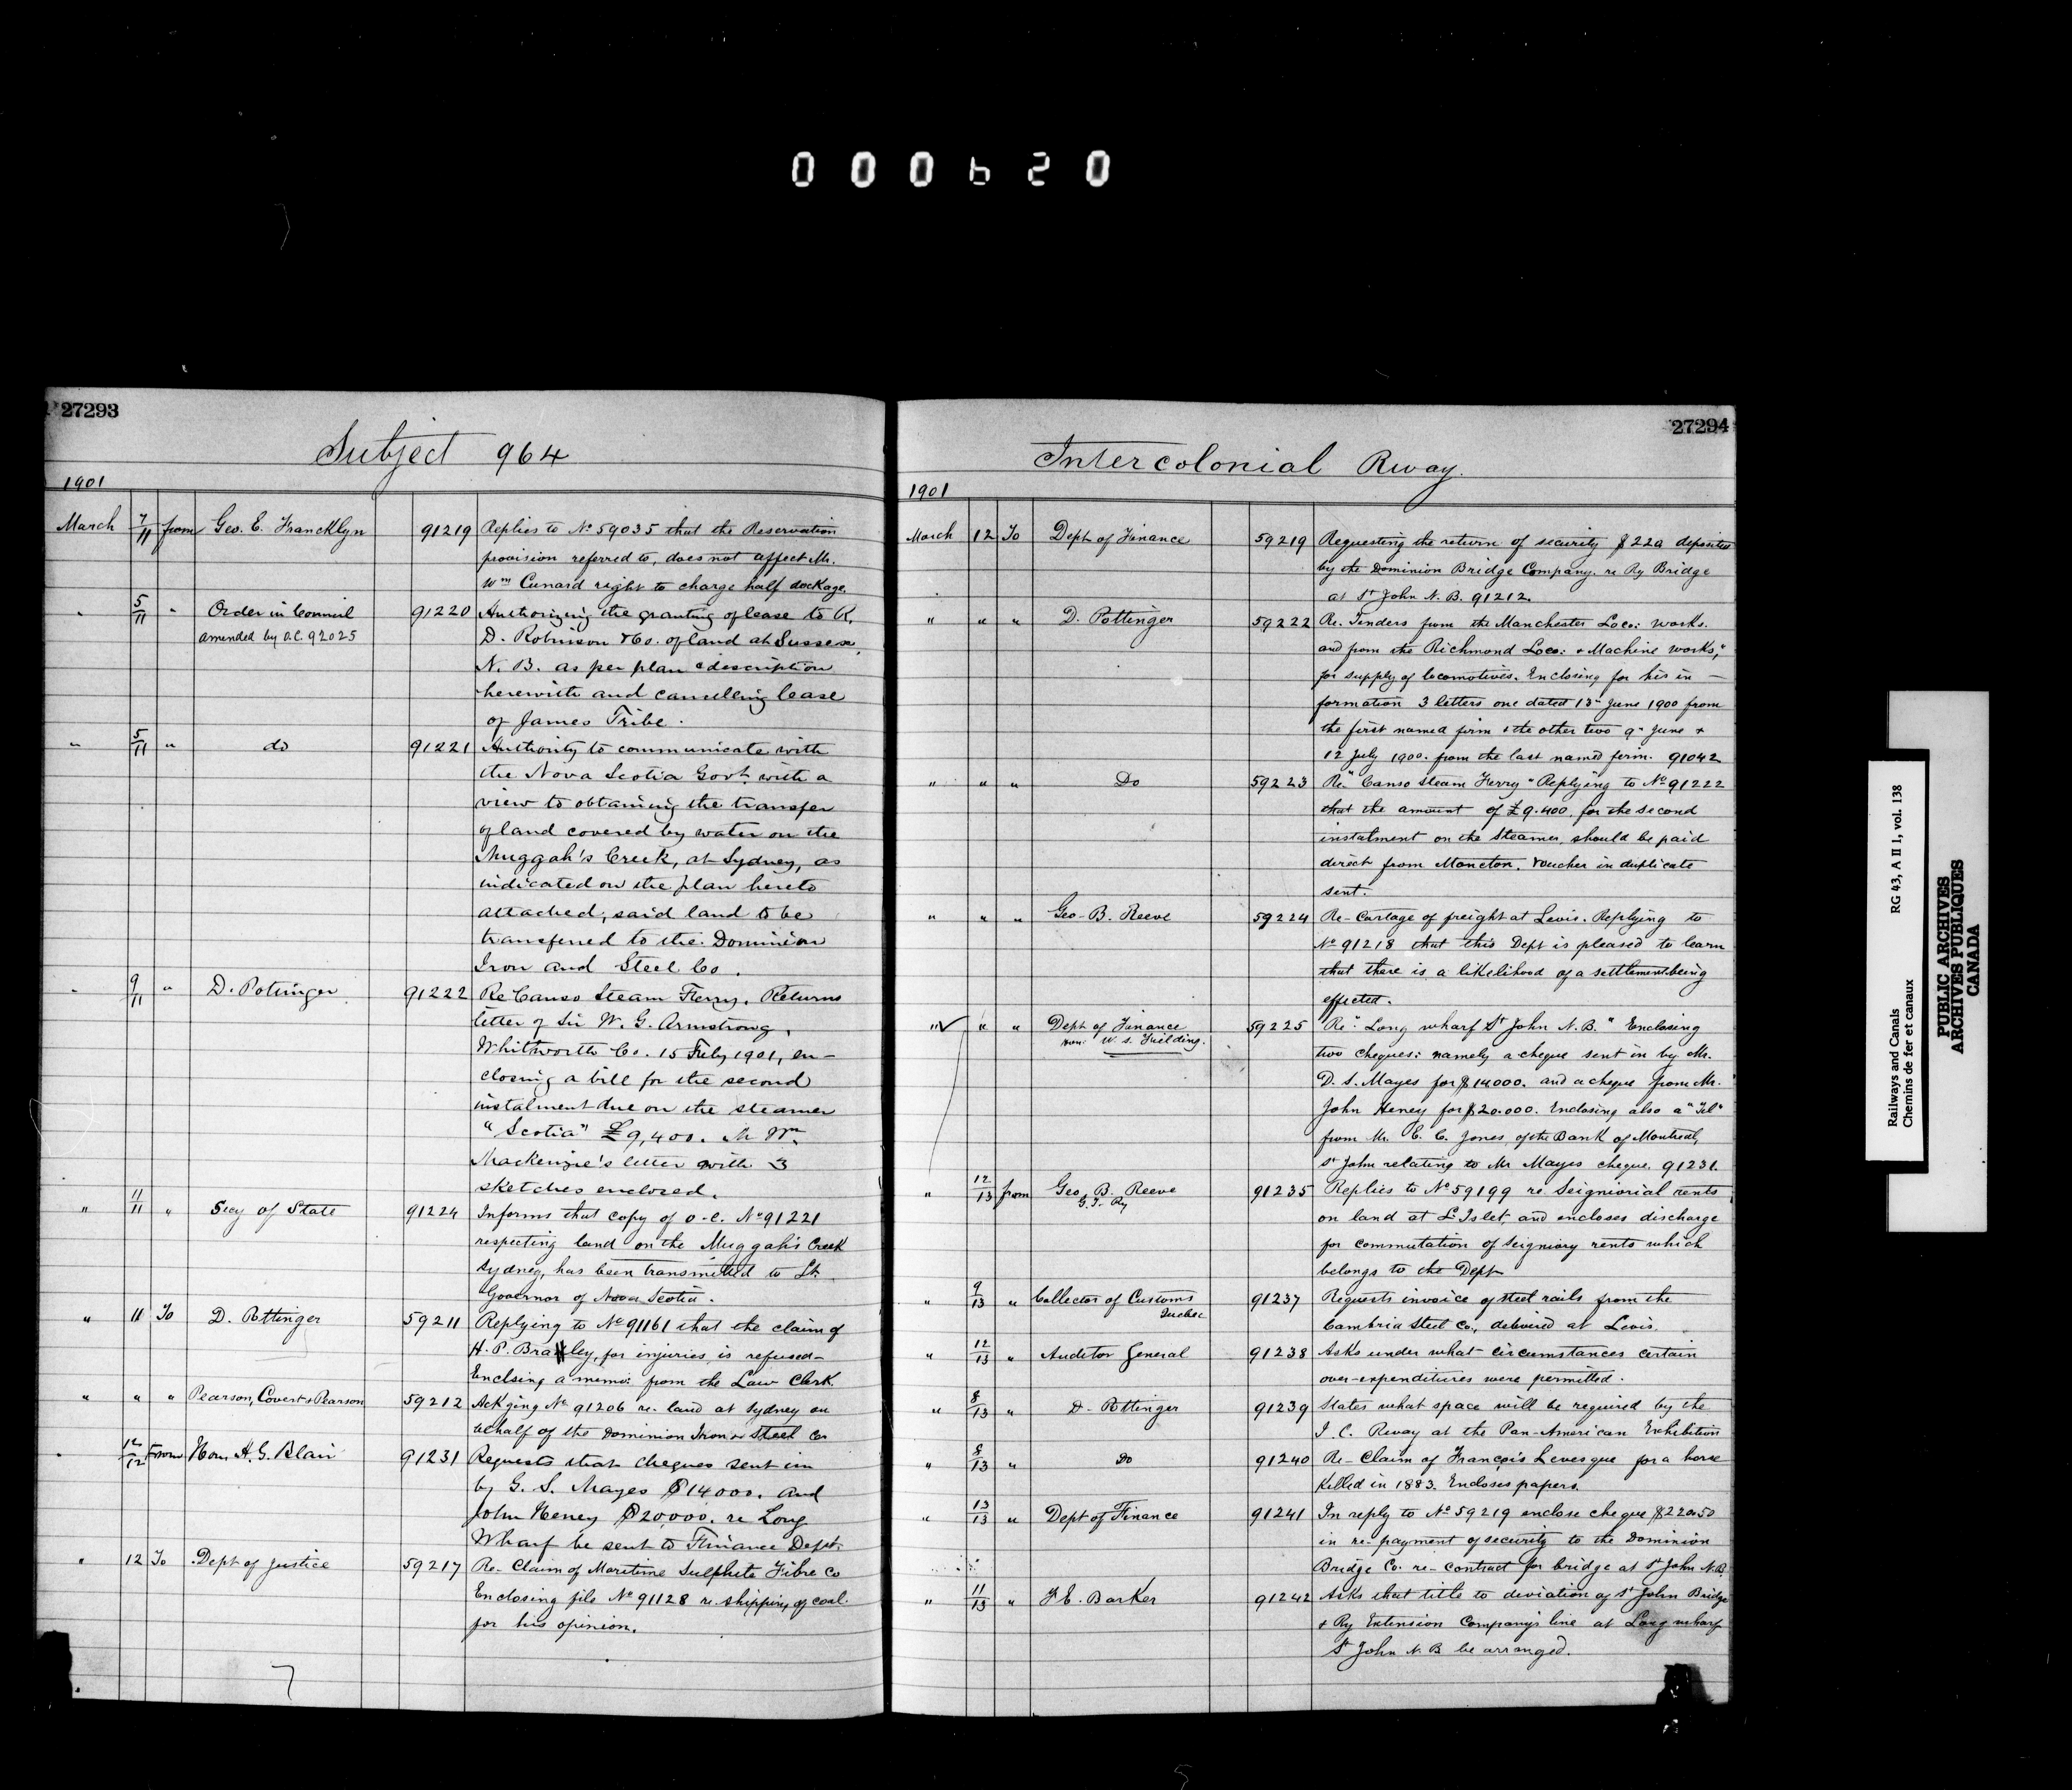 000620
27293
Subject 964
1901
March 7/11 from Geo. E. Francklyn 91219 Replies to No 59035 that the Reservation
provision referred to, does not affect Mr.
Wm Cunard right to charge half dockage.
" 5/11 " Order in Council 91220 Authorizing the granting of lease to K.
amended by O.C. 92025 D. Robinson & Co. of land at Sussex,
N. B. as per plan & description
herewith and cancelling lease
of James Tribe.
" 5/11 " do 91221 Authority to communicate with
the Nova Scotia Govt. with a
view to obtaining the transfer
of land covered by water on the
Muggah's Creek, at Sydney, as
indicated on the plan hereto
attached, said land to be
transferred to the Dominion
Iron and Steel Co.
" 9/11 " D. Pottinger 91222 Re Canso Steam Ferry. Returns
letter of Sir W. G. Armstrong,
Whitworth Co. 15 Feby 1901, en-
closing a bill for the second
instalment due on the steamer
"Scotia" £9,400. M Wm
Mackenzie's letter with 3
sketches enclosed.
" 11/11 " Secy of State 91224 Informs that copy of O-C. No 91221
respecting land on the Muggah's Creek
Sydney, has been transmitted to Lt.
Governor of Nova Scotia.
" 11 To D. Pottinger 59211 Replying to No 91161 that the claim of
H. P. Bradley, for injuries, is refused-
Enclsing a memo: from the Law Clerk.
" " " Pearson, Covert & Pearson 59212 Ackging No 91206 re land at Sydney on
behalf of the Dominion Iron & Steel Co
" 12/12 From Hon. A. G. Blair 91231 Requests that cheques sent in
by G. S. Mayes $14000. and
John Heney $20,000. re Long
Wharf be sent to Finance Dept.
" 12 To Dept of Justice 59217 Re- Claim of Maritime Sulphite Fibre Co
Enclosing file No 91128 re shipping of coal
for his opinion.
27294
Intercolonial Rway.
1901
March 12 To Dept of Finance 59219 Requesting the return of security $220 deposited
by the Dominion Bridge Company. re Ry Bridge
at St John N. B. 91212.
" " " D. Pottinger 59222 Re. Tenders from the Manchester Loco: works.
and from the Richmond Loco: & Machine works,"
for supply of locomotives. Enclosing for his in-
formation 3 letters one dated 13th June 1900 from
the first named firm & the other two 9th June &
12 July 1900. from the last named firm. 91042
" " " Do 59223 Re "Canso Steam Ferry" Replying to No 91222
that the amount of £9.400. for the second
instalment on the steamer, should be paid
direct from Moncton. Voucher in duplicate
sent.
" " " Geo. B. Reeve 59224 Re- Cartage of freight at Levis. Replying to
No 91218 that this Dept is pleased to learn
that there is a likelihood of a settlement being
effected.
" " " Dept of Finance 59225 Re "Long wharf St John N. B." Enclosing
Hon. W. S. Fielding. two cheques: namely a cheque sent in by Mr.
D. S. Mayes for $14000. and a cheque from Mr.
John Heney for $20.000. Enclosing also a "Tel"
from Mr. E. C. Jones, of the Bank of Montreal,
St John relating to Mr Mayes cheque. 91231.
" 12/13 from Geo. B. Reeve 91235 Replies to No 59199 re. Seigniorial rents
G. T. Ry on land at L'Islet, and encloses discharge
for commutation of Seigniory rents which
belongs to the Dept
" 9/13 " Collector of Customs 91237 Requests invoice of steel rails from the
Quebec Cambria Steel Co., delivered at Levis.
" 12/13 " Auditor General 91238 Asks under what circumstances certain
over-expenditures were permitted.
" 8/13 " D. Pottinger 91239 States what space will be required by the
I. C. Rway at the Pan-American Exhibition
" 8/13 " Do 91240 Re- Claim of François Levesque for a horse
killed in 1883. Encloses papers.
" 13/13 " Dept of Finance 91241 In reply to No 59219 enclose cheque $220.50
in re-payment of security to the Dominion
Bridge Co. re- contract for bridge at St John N.B.
" 11/13 " F. E. Barker 91242 Asks that title to deviation of St John Bridge
& Ry Extension Company's line at Long wharf
St John N. B be arranged.
Railways and Canals RG 43, A II 1, vol. 138
Chemins de fer et canaux
PUBLIC ARCHIVES
ARCHIVES PUBLIQUES
CANADA